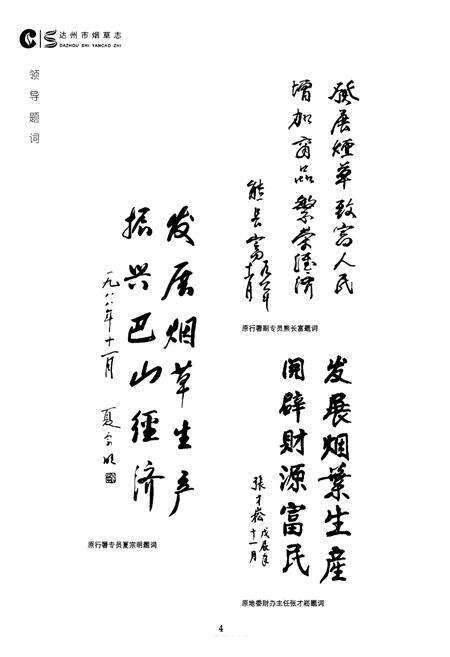 达州市烟草志
DAZHOU SHI YANCAO ZHI
领导题词
發展煙草致富人民
增加商品繁榮經濟
熊长富
原行署副专员熊长富题词
发展烟草生产
振兴巴山經济
一九八八年十一月 夏宗明
原行署专员夏宗明题词
发展烟葉生産
開辟財源富民
張才崧 戊辰年
十一月
原地委财办主任张才崧题词
4